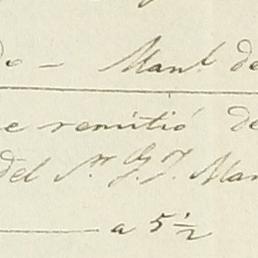 do - Manl. de
e remitió de
del Sr. G. J. Man
a 5 1/2